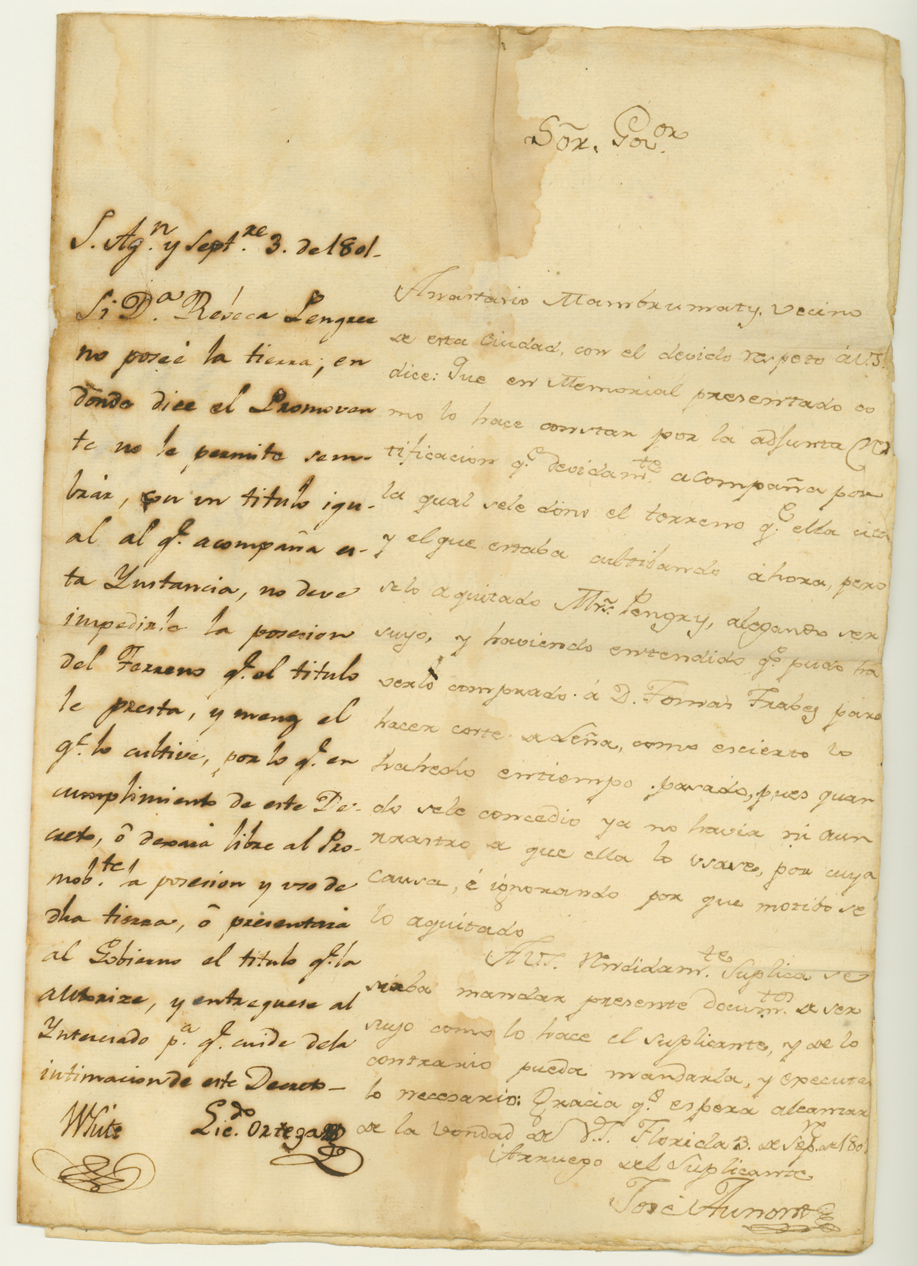 Sõr. Gov.or
S. Ag.n y Sept.re 3. de 1801-
Si D.a Reveca Pengree
no poseé la tierra, en
donde dice el Promoven
te no le permite sem-
brar, por un titulo igu-
al al q.e acompaña es-
ta Ynstancia, no deve
impedirle la posesion
del Terreno q.e el titulo
le presta, y menos el
q.e lo cultive, por lo q.e en
cumplimiento de este De-
creto, ô dexará libre al Pro-
mob.te la posesion y uso de
dha tierra, ô presentará
al Gobierno el titulo q.e la
autorize, y entreguese al
Ynteresado p.a q.e cuide dela
intimacion de este Decreto-
White Lic.do Ortega
Anastasio Mambrumaty, vecino
de esta Ciudad, con el devido respeto á V.S.
dice: Que en Memorial presentado co
mo lo hace constar por la adjunta Cer
tificacion q.e devidam.te acompaña por
la qual sele dono el terreno q.e ella
y el que estaba cultibando ahora, pero
selo aquitado Mrs. Pengry, alegando ser
suyo, y haviendo entendido q.e pudo ha
serlo comprado á D. Tomas Trabes para
hacer corte de Leña, como escierto lo
hahecho entiempo pasado, pues quan
do sele concedio ya no havia ni aun
rrastro de que ella lo usase, por cuya
causa, é ignorando por que motibo se
lo aquitado
AVS. Rendidam.te Suplica se
sirba mandar presente docum.tos de ser
suyo como lo hace el suplicante, y de lo
contrario pueda mandarla, y execute
lo necesario: Gracia q.e espera alcanzar
de la vondad de V.S. Florida 3. de Sep.re de 1801
Arruego del Suplicante
José